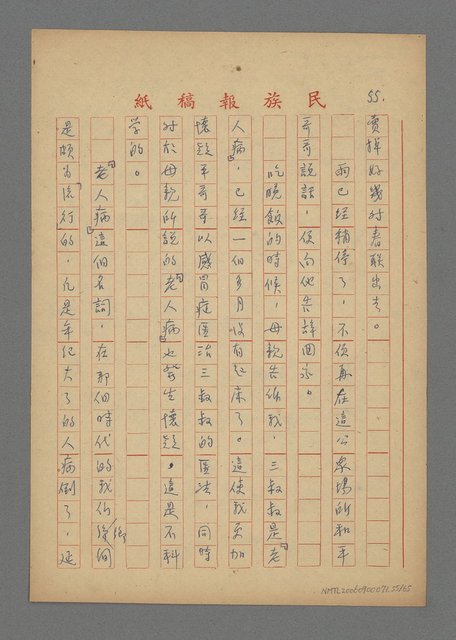 民族報稿紙
55.
賣掉好幾对春聯出去。
雨已經稍停了，不便再在這公眾場所和平
哥哥說話，便向他告辞回家。
吃晚飯的時候，母親告訴我，三叔叔是「老
人病」，已經一個多月沒有起床了。這使我更加
懷疑平哥哥以感冒症医治三叔叔的医法，同時
对於母親所說的「老人病」也發生懷疑，這是不科
学的。
「老人病」這個名詞，在那個時代的我们鄉間
是頗為流行的，凡是年紀大了的人病倒了，延
NMTL20060900071.55/65